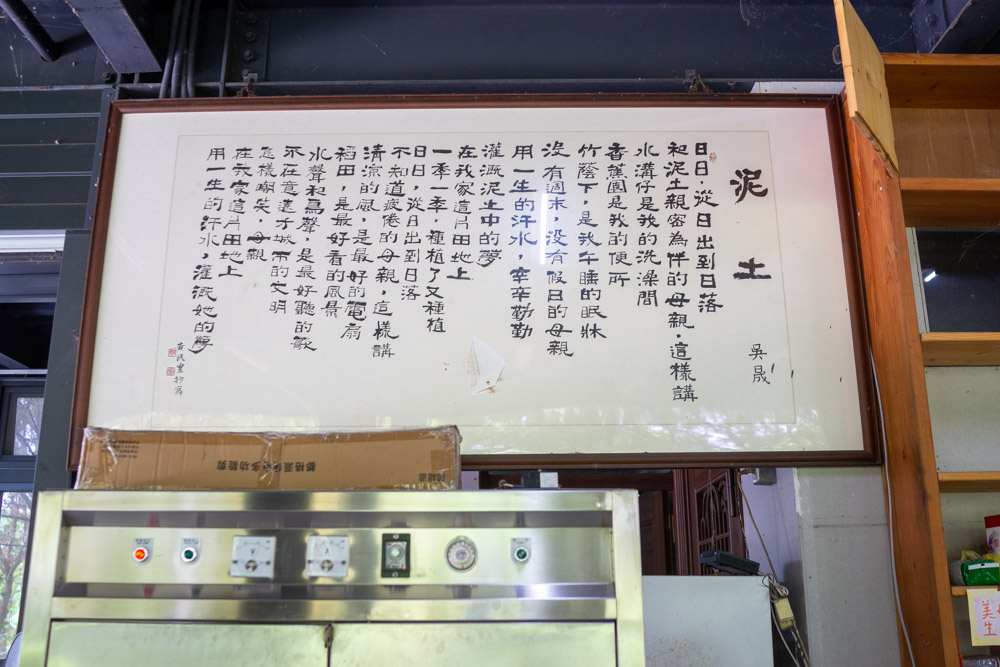 泥土
吳晟
日日，從日出到日落
和泥土親密為伴的母親，這樣講
水溝仔是我的洗澡間
香蕉園是我的便所
竹蔭下，是我午睡的眠牀
沒有週末，沒有假日的母親
用一生的汗水，辛辛勤勤
灌溉泥土中的夢
在我家這片田地上
一季一季，種植了又種植
日日，從日出到日落
不知道疲倦的母親，這樣講
清涼的風，是最好的電扇
稻田，是最好看的風景
水聲和鳥聲，是最好聽的歌
不在意遠方城市的文明
怎樣嘲笑，母親
在我家這片田地上
用一生的汗水，灌溉她的夢
美生